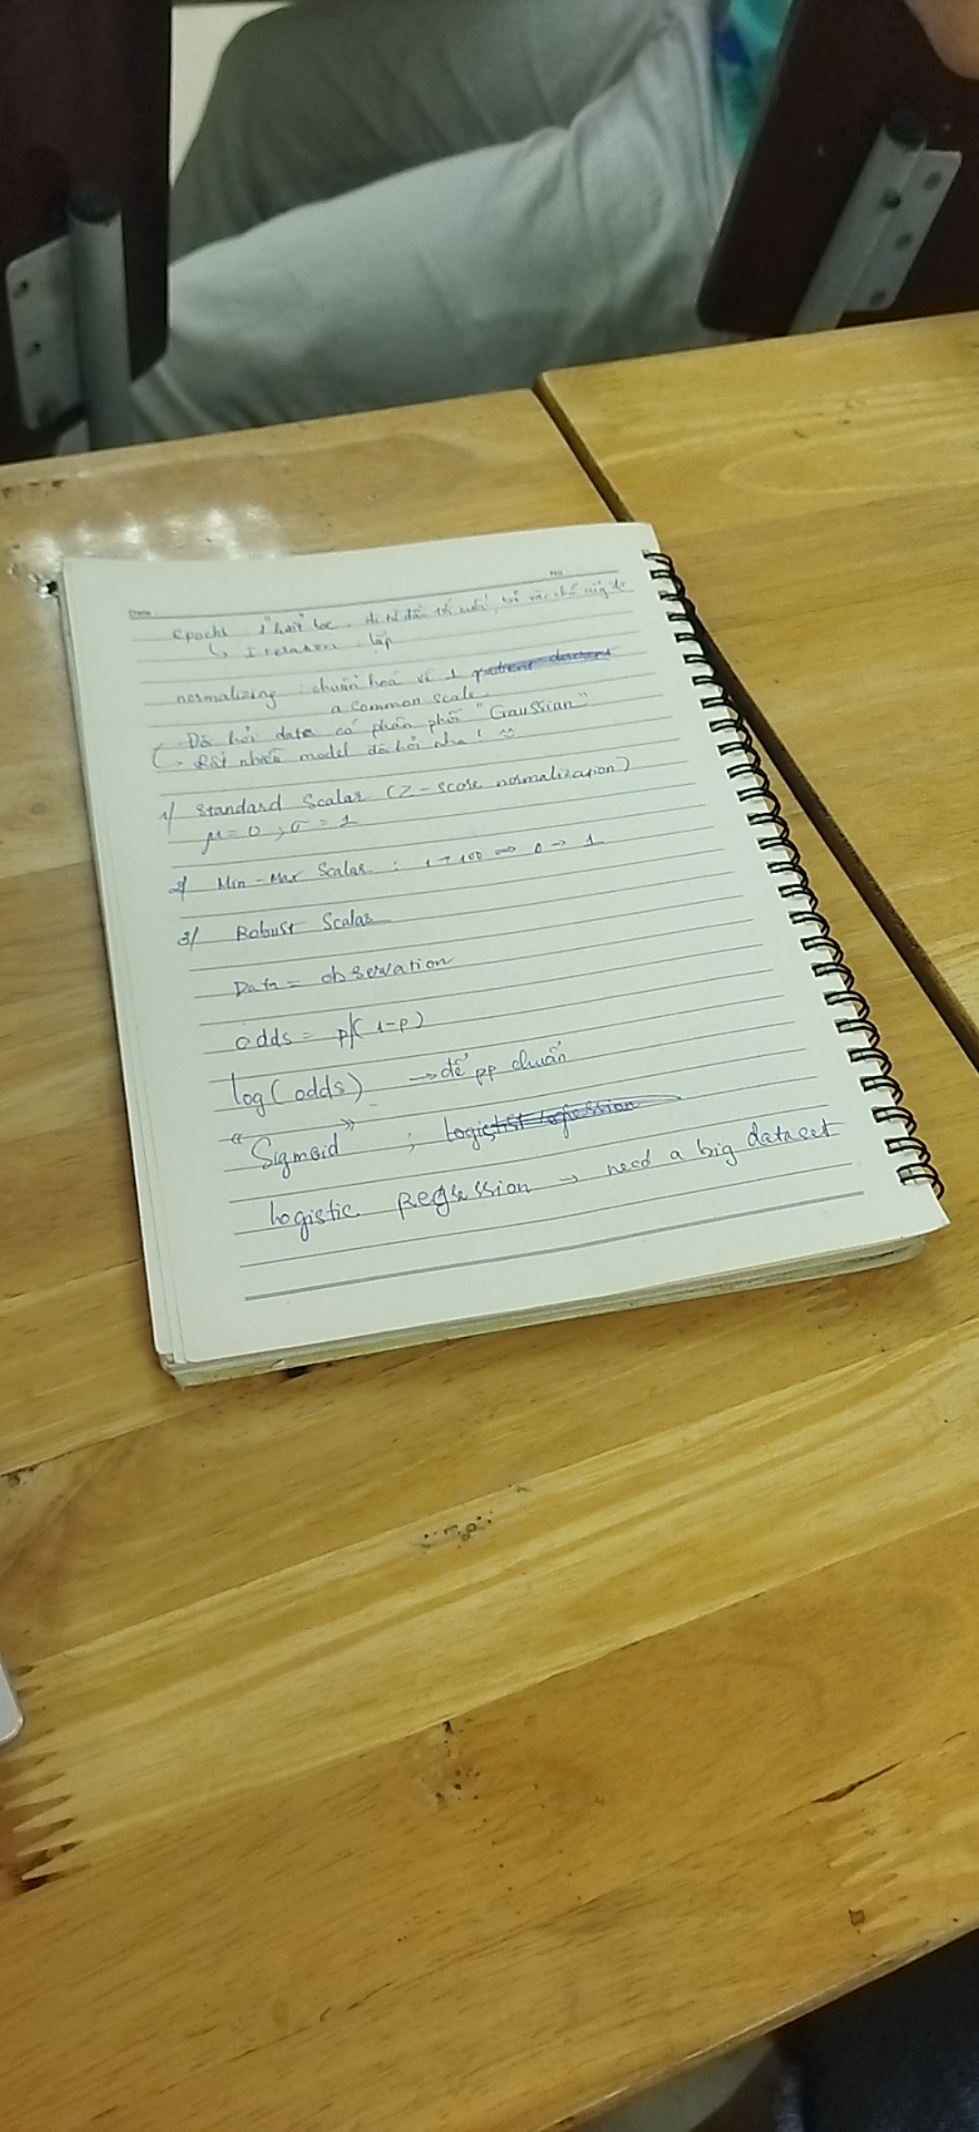 Date No.
epochs : 1 hồi đi từ đầu tới cuối,
↳ Iteration : lặp
normalizing : chuẩn hoá về 1
a common scale
- Đòi hỏi data có phân phối "Gaussian"
- Rất nhiều model đòi hỏi nha!
1/ Standard Scalar (Z-score normalization)
μ = 0 , σ = 1
2/ Min-Max Scalar : 1 → 100 => 0 → 1
3/ Robust Scalar
Data = observation
odds = p/(1-p)
log(odds) → để pp chuẩn
"Sigmoid" ;
Logistic Regression → need a big dataset